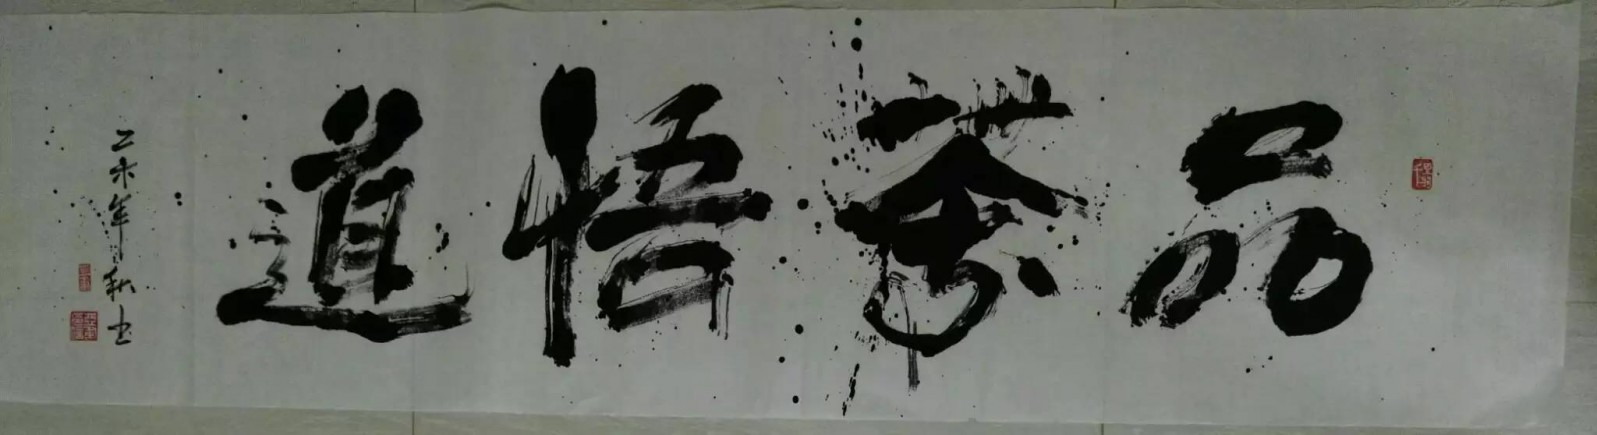 品茶悟道
乙未年秋书